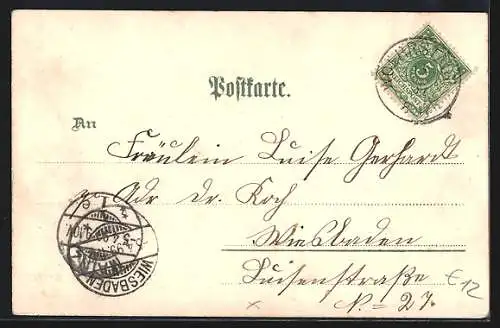 Postkarte.
An
Fräulein Luise Gerhardt
Adr Dr. Koch
Wiesbaden
Luisenstraße
N. = 27.
€12
5
WIESBADEN